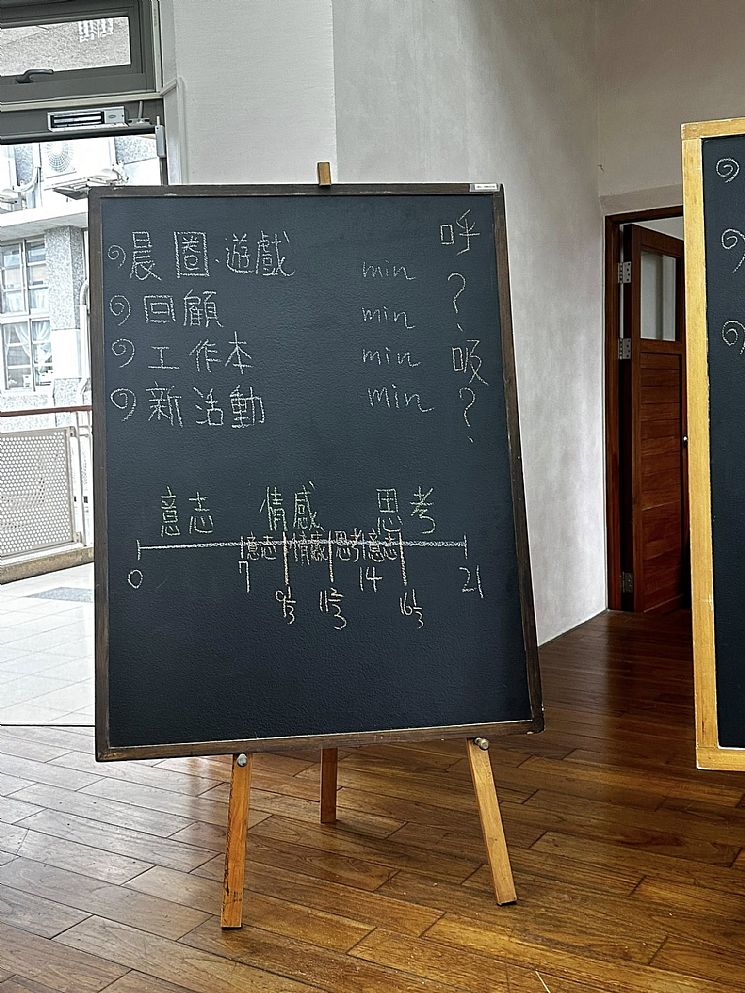 晨圈·遊戲 min 呼
回顧 min ?
工作本 min 吸
新活動 min ?
意志 情感 思考
意志 情感 思考 意志
0 7 9 1/3 11 2/3 14 16 1/3 21